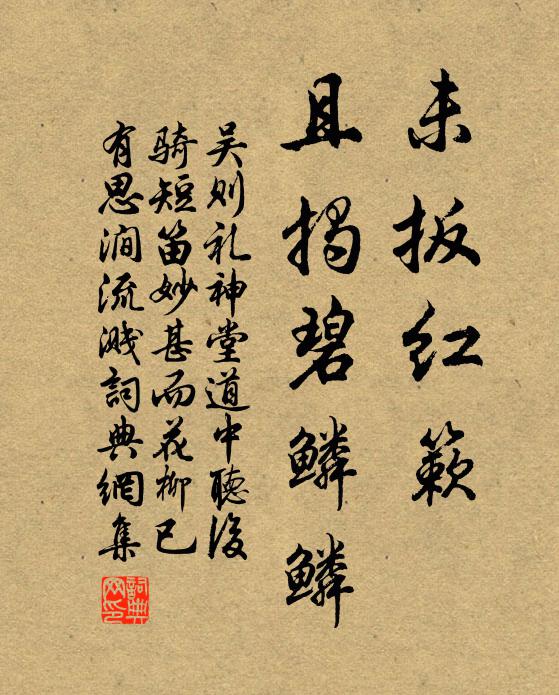 未扳红簌簌
且揭碧鳞鳞
吴则礼神堂道中聽後
骑短笛妙甚而花柳已
有思涧流溅詞典網集
詞典网印